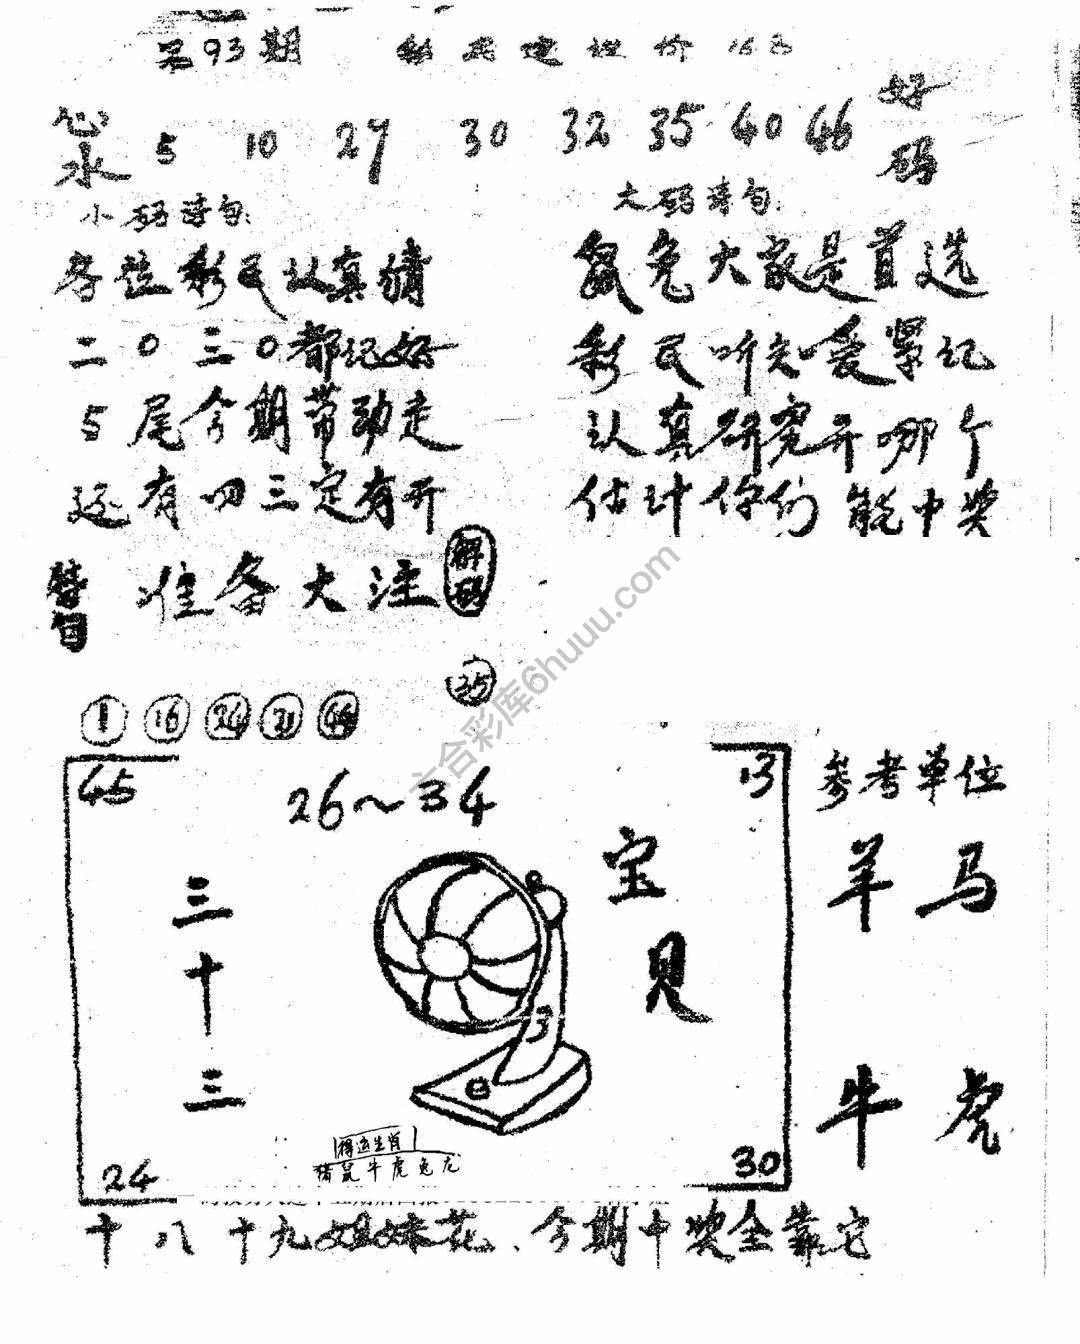 第93期 彩民建议价
心水 5 10 29 30 32 35 40 46 好码
小码诗句:
各位彩民认真猜
二0三0都记好
5尾今期带动走
还有四三定有开
大码诗句:
鼠兔大家是首选
彩民听知要紧记
认真研究开哪个
估计你们能中奖
准备大注 解码
35
1 16 24 21 44
45 26~34 13
三十三
宝贝
3
得运生肖
猪鼠牛虎兔龙
24 30
参考单位
羊 马
牛 虎
十八十九姐妹花、今期中奖全靠它
六合彩库6huuu.com